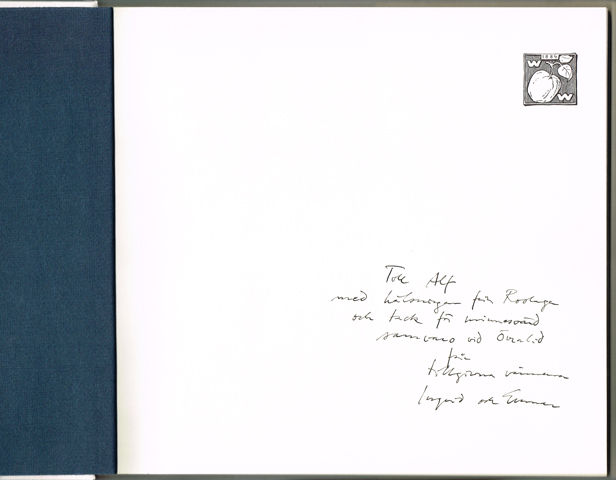 1886
W
W
Till Alf
med hälsningar från Roslagen
och tack för minnesvärd
samvaro vid Övralid
från
tillgivna vännerna
Ingrid och Gunnar